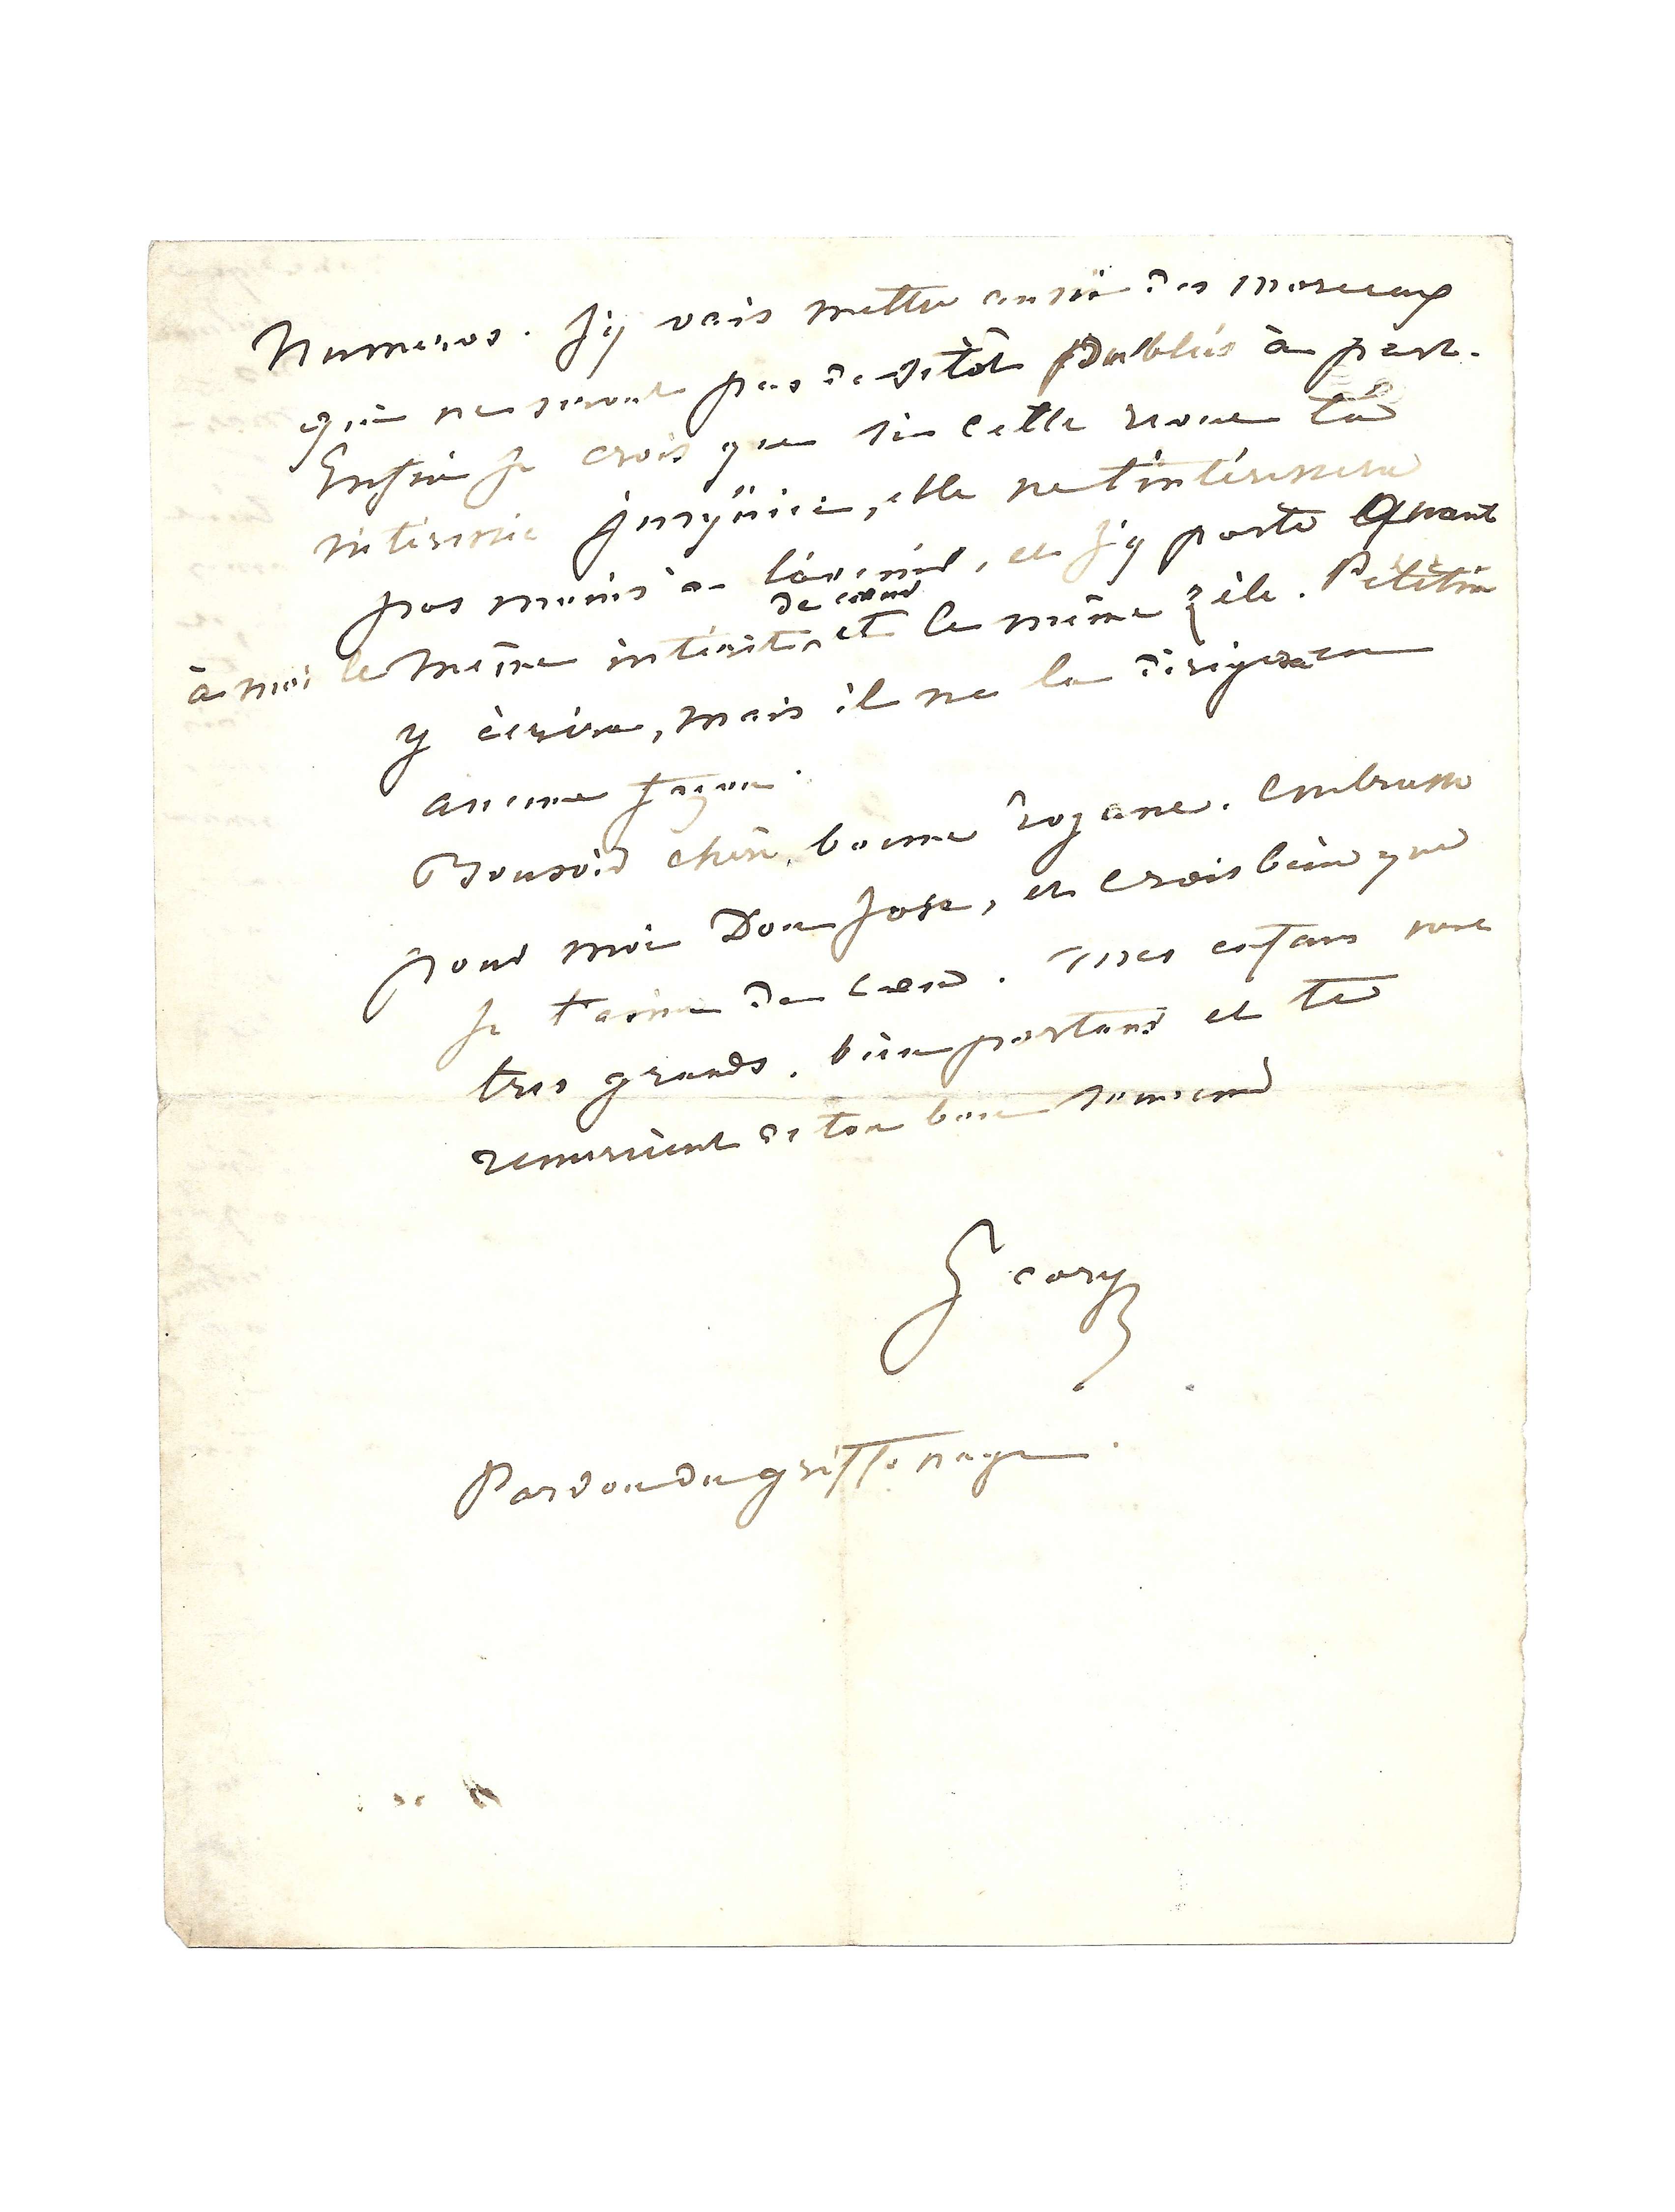 numeros. J'y vais mettre aussi des morceaux
qui ne seront pas de sitôt publiés à part.
Enfin je crois que si cette revue t'a
interessée jusqu'ici, elle ne t'intéressera
pas moins à l'avenir, et j'y porte quant
à moi le même intérêt de cœur et le même zèle. Pététin
y écrira, mais il ne la dirigera en
aucune façon.
Bonsoir chère, bonne Rozane. Embrasse
pour moi Don José, et crois bien que
je t'aime de cœur. Mes enfans sont
tres grands, bien portans et te
remercient de ton bon souvenir
George
Pardon du griffonage.